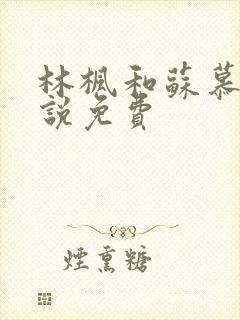 林楓和蘇慕
說免費
煙熏糖